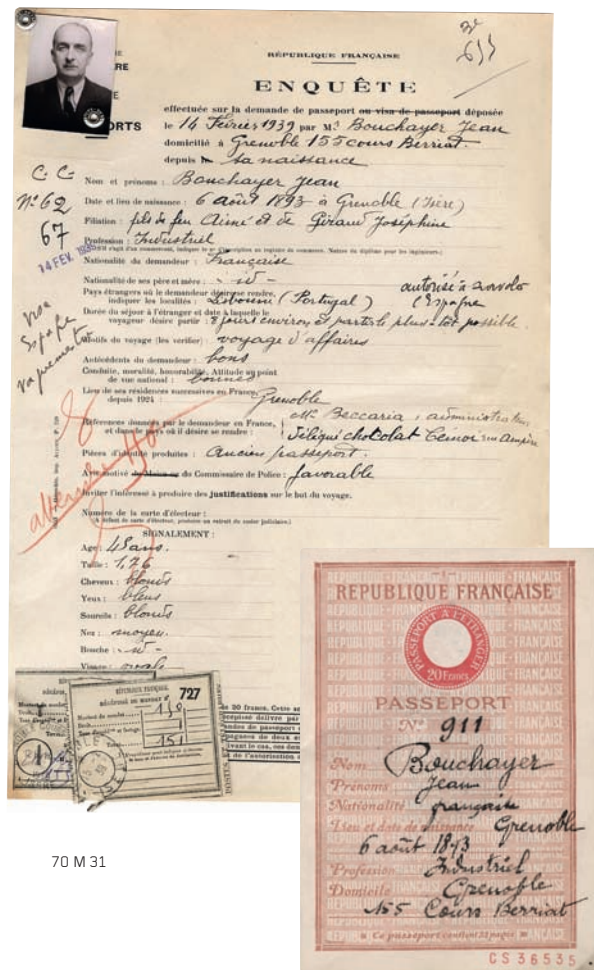 RÉPUBLIQUE FRANÇAISE
ENQUÊTE
effectuée sur la demande de passeport ou visa de passeport déposée
le 14 Février 1939 par Mr Bouchayer Jean
domicilié à Grenoble 155 cours Berriat.
depuis le sa naissance
C. C.
Nom et prénoms : Bouchayer Jean
N° 62
67
Date et lieu de naissance : 6 août 1893 à Grenoble (Isère)
Filiation : fils de feu Aimé et de Giraud Joséphine
Profession : Industriel
14 FEV.
Nationalité du demandeur : Française
Nationalité de ses père et mère : - id -
Pays étrangers où le demandeur désire se rendre,
indiquer les localités : Lisbonne (Portugal)
autorisé à
Espagne
Durée du séjour à l'étranger et date à laquelle le
voyageur désire partir : 8 jours environ et partir le plus tôt possible.
Visa
Espagne
Motifs du voyage (les vérifier) : voyage d'affaires
Antécédents du demandeur : bons
Conduite, moralité, honorabilité, Attitude au point
de vue national : bonnes
Lieu de ses résidences successives en France,
depuis 1924 : Grenoble
Références données par le demandeur en France,
et dans le pays où il désire se rendre :
Mr Beccaria, administrateur
chocolat Cémoi rue Ampère
Pièces d'identité produites : Ancien passeport.
Avis motivé du Maire ou du Commissaire de Police : favorable
Inviter l'intéressé à produire des justifications sur le but du voyage.
Numéro de la carte d'électeur :
A défaut de carte d'électeur, produire un extrait du casier judiciaire.
SIGNALEMENT :
Age : 45 ans.
Taille : 1,76
Cheveux : blonds
Yeux : bleus
Sourcils : blonds
Nez : moyen
Bouche : - id -
Visage : ovale
RÉPUBLIQUE FRANÇAISE
727
151
70 M 31
RÉPUBLIQUE FRANÇAISE
PASSEPORT A L'ÉTRANGER
20 Francs
PASSEPORT
N° 911
Nom Bouchayer
Prénoms Jean
Nationalité française
Lieu et date de naissance Grenoble
6 août 1893
Profession Industriel
Domicile Grenoble
155 Cours Berriat
Ce passeport contient 32 pages
CS 36535